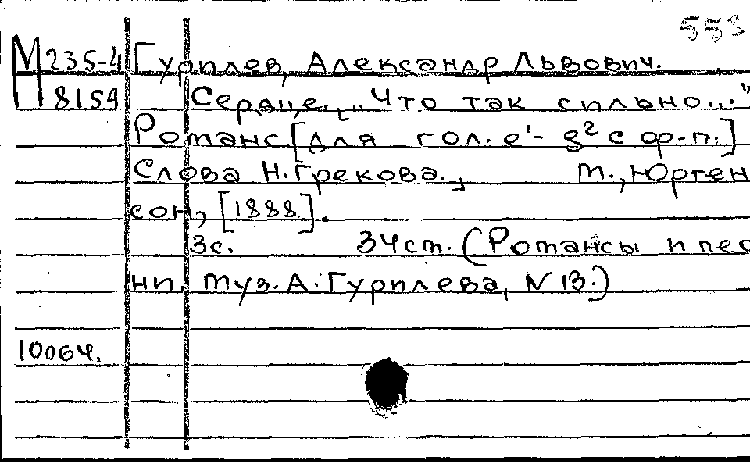 553
М 235-4 Гурилев, Александр Львович.
8159 Сердце. „Что так сильно...“
Романс [для гол. e¹- g² с ф-п.]
Слова Н. Грекова., М., Юрген
сон, [1888].
3с. 34см. (Романсы и пес
ни. Муз. А. Гурилева, N 13.)
10064.